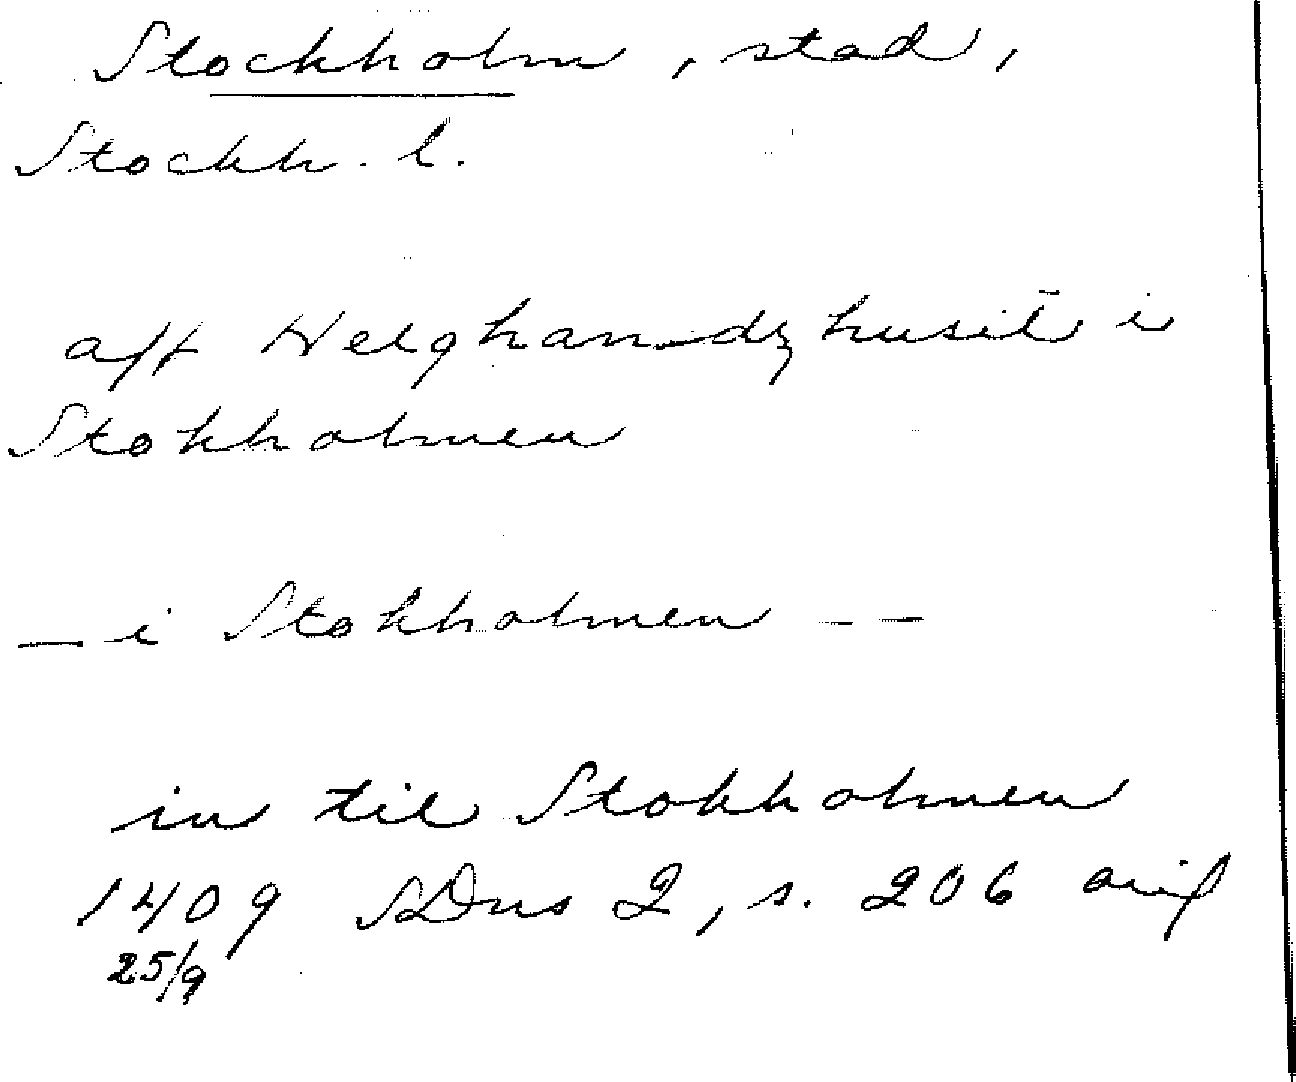 Stockholm, stad,
Stockh. l.
aff Helghandzhusit i
Stokholmen
— i Stokholmen — —
in til Stokholmen
1409 SDns 2, s. 206
25/9